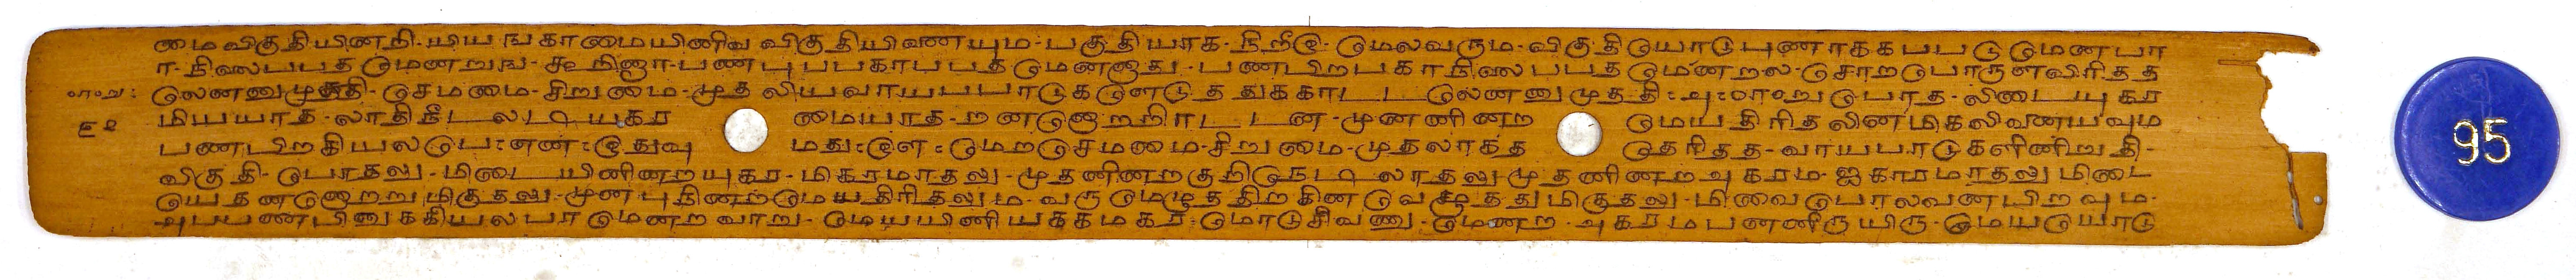 மைவிகுதியினநி-யியஙகாமையினிவ விகுதியிவணயும-பகுதியாக-நிறீஇ-மெலவரும-விகுதியொடுபுணாககபபடடுமெணபா
ா-நிலைபபதமெணறுங-கூறினா-பணபுபபகாபபதமெனனாது-பணபிறபகாநிலைபபதமெணறல-சொறபொருளவிரிதத
லெனனுமுததி-செமமை-சிறுமை-முதலியவாயபபாடுகளெடுததுககாடடலெனனுமுததி: அ:ாறுபொத-லிடையுகர
மியயாத-லாதிநீடலடியகர மையாத-றனனொறறிரடடன-முனனினற மெயதிரிதலினமிகலிவணயவும
பணபிறகியலபெ:எண:இதுவு மது:இள:மெறசெமமை-சிறுமை-முதலாகத தெரிதத-வாயபாடுகளினிறுதி-
விகுதி-பொதலு-மிடையினினறயுகர-மிகரமாதலு-முதனினறகுறினெடிலாதலுமுதனினறஅகரம-ஐகாரமாதலுமிடை
யெதனனொறறுமிகுதலு-முனபுநினறமெயதிரிதலும-வருமெழுததிறகினவெழுததுமிகுதலு-மிவைபொலவனபிறவும-
அபபணபினுககியலபாமெணறவாறு-மெயயினியககமகர-மொடுசிவணு-மெணற-அகரமபனனீருயிரு-மெயயொடு
95